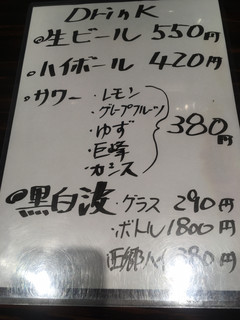 Drink
生ビール 550円
ハイボール 420円
サワー ・レモン
・グレープフルーツ
・ゆず
・巨峰
・カシス
380円
黒白波 ・グラス 290円
・ボトル 1800円
西郷ハイ 380円